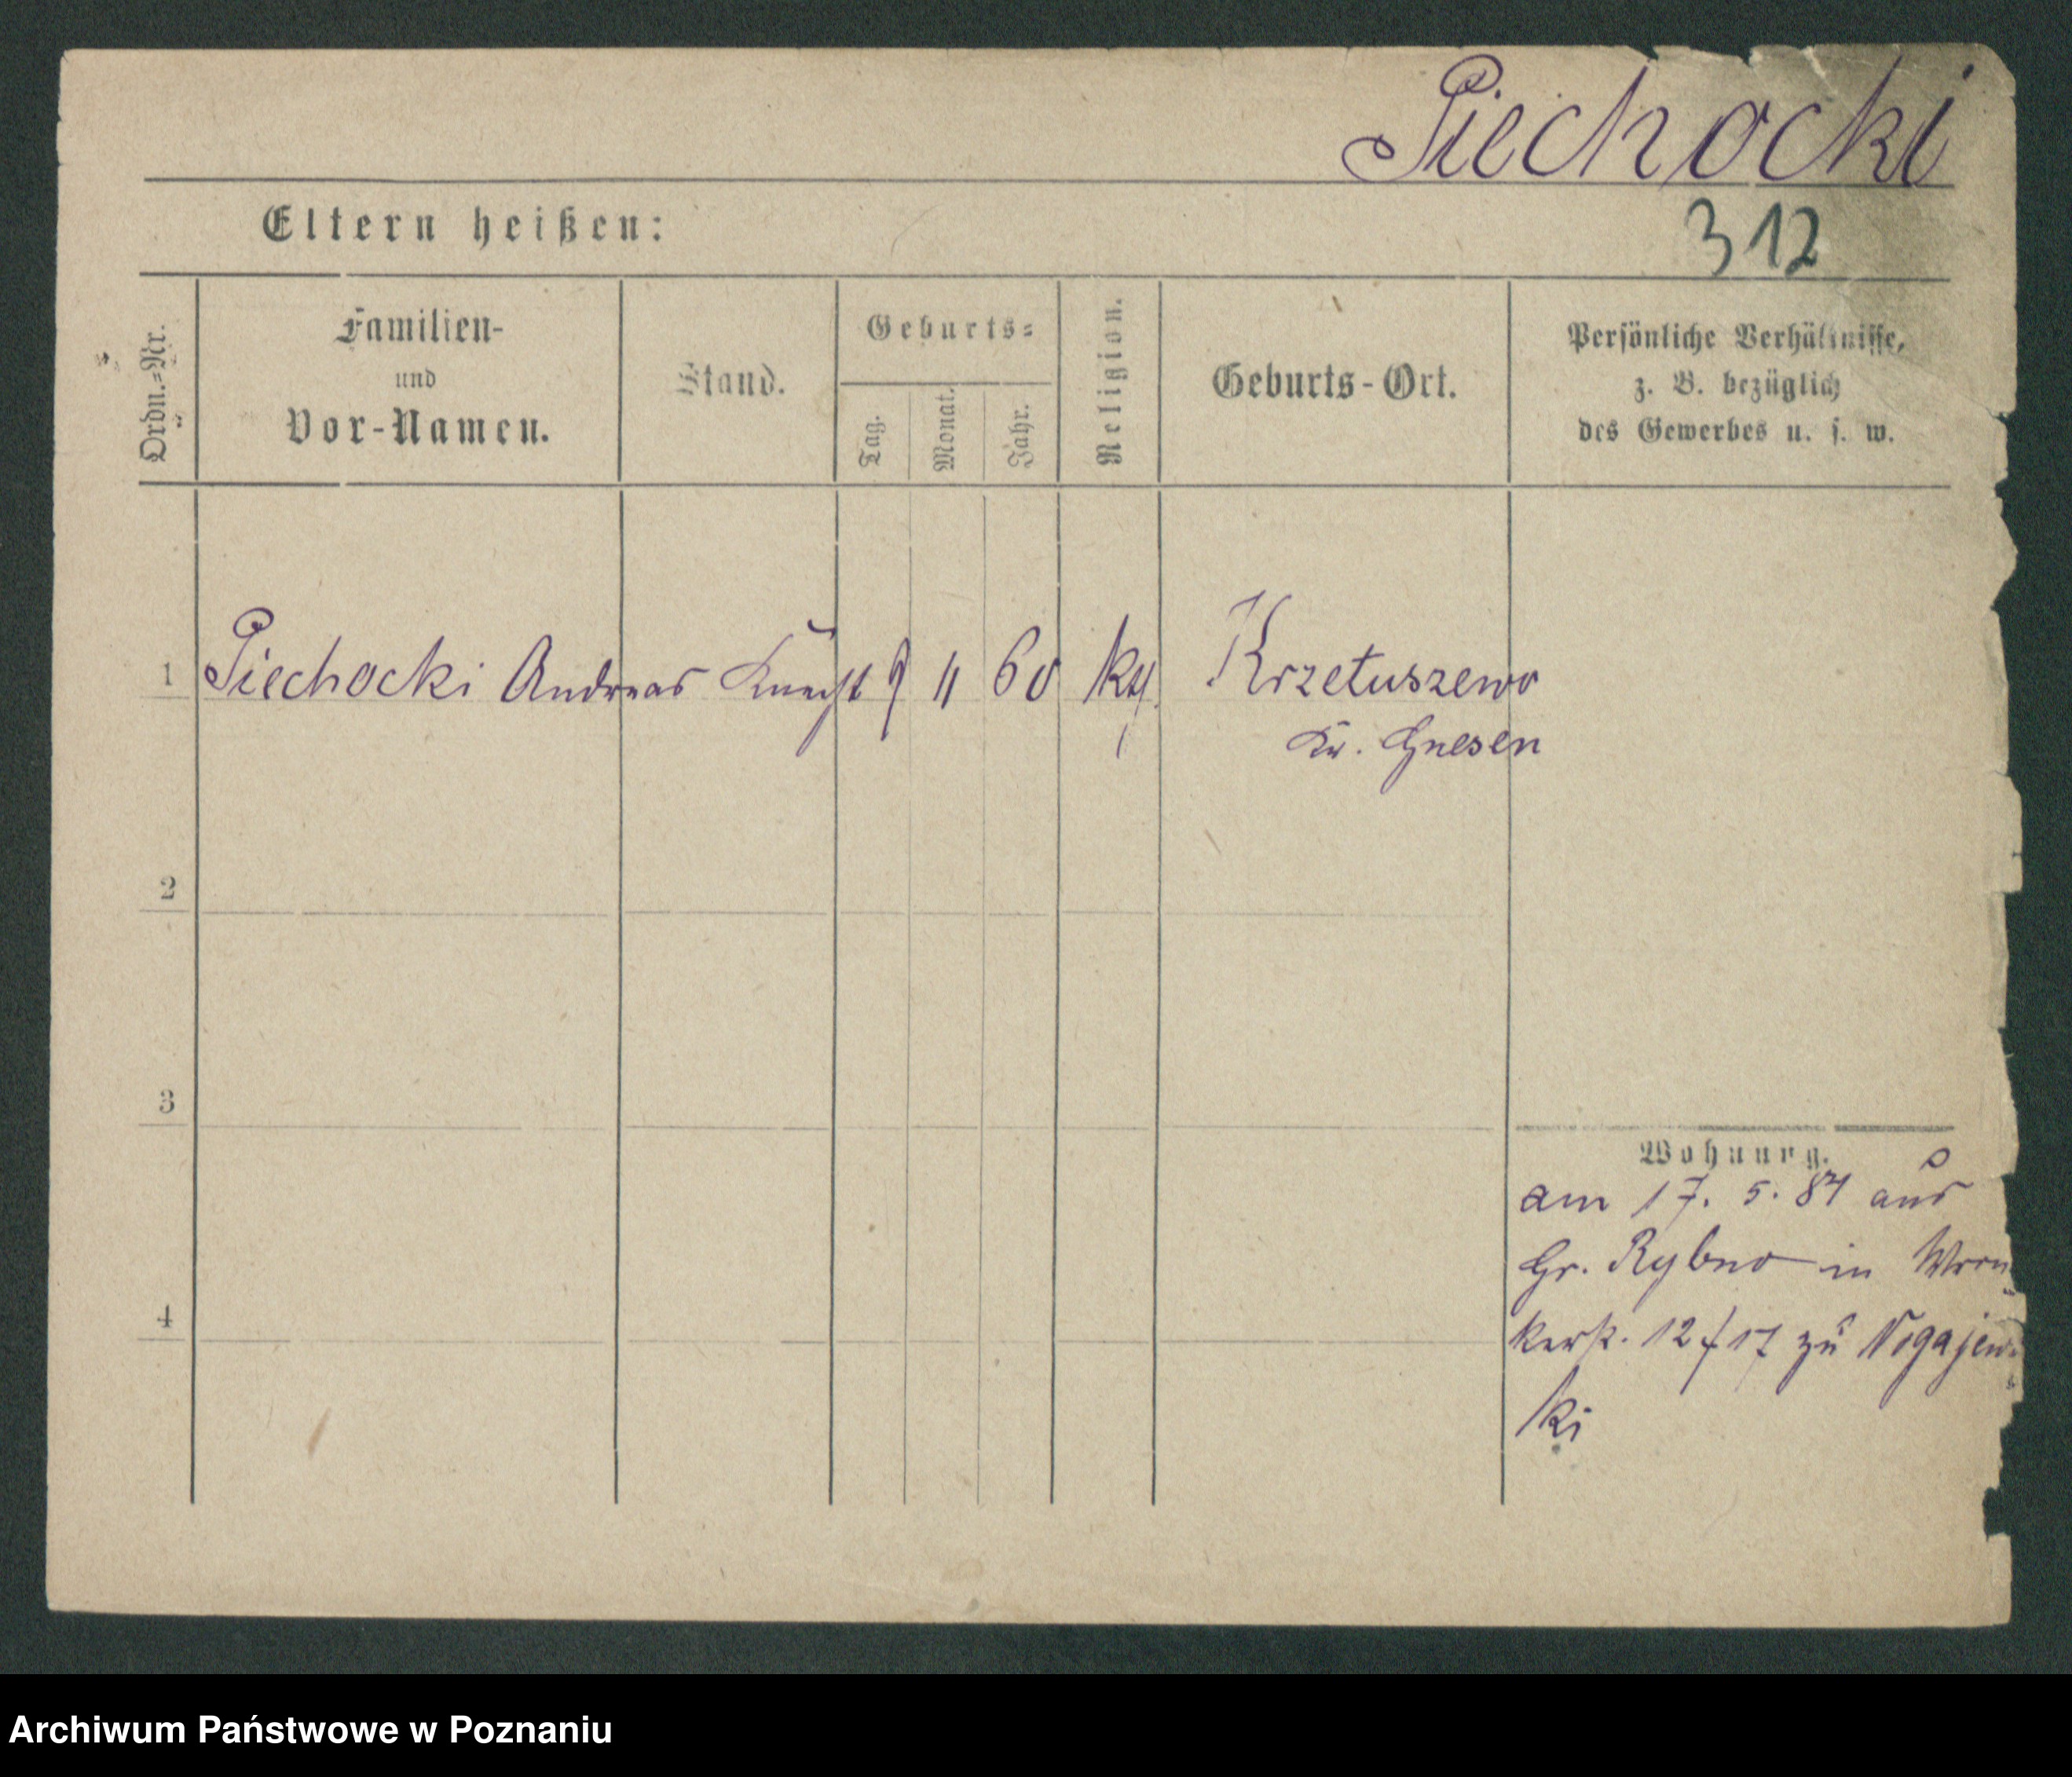 Piechocki
Eltern heißen:
312
Ordn.-Nr.
Familien-
und
Vor-Namen.
Stand.
Geburts-
Tag.
Monat.
Jahr.
Religion.
Geburts-Ort.
Persönliche Verhältnisse,
z. B. bezüglich
des Gewerbes u. s. w.
1 Piechocki Andreas Knecht 9 11 60 kth. Krzetuszewo
Kr. Gnesen
2
3
Wohnung.
am 17. 5. 84 aus
Gr. Rybno in Wron
kerstr. 12/17 zu Nogajew
4
ki
Archiwum Państwowe w Poznaniu